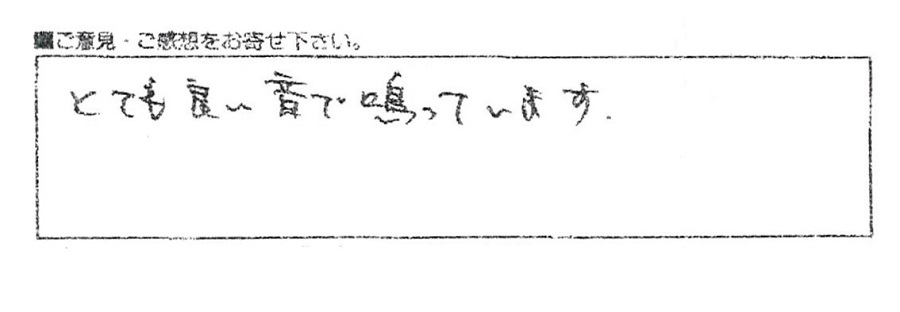 ■ご意見・ご感想をお寄せ下さい。
とても良い音で鳴っています.